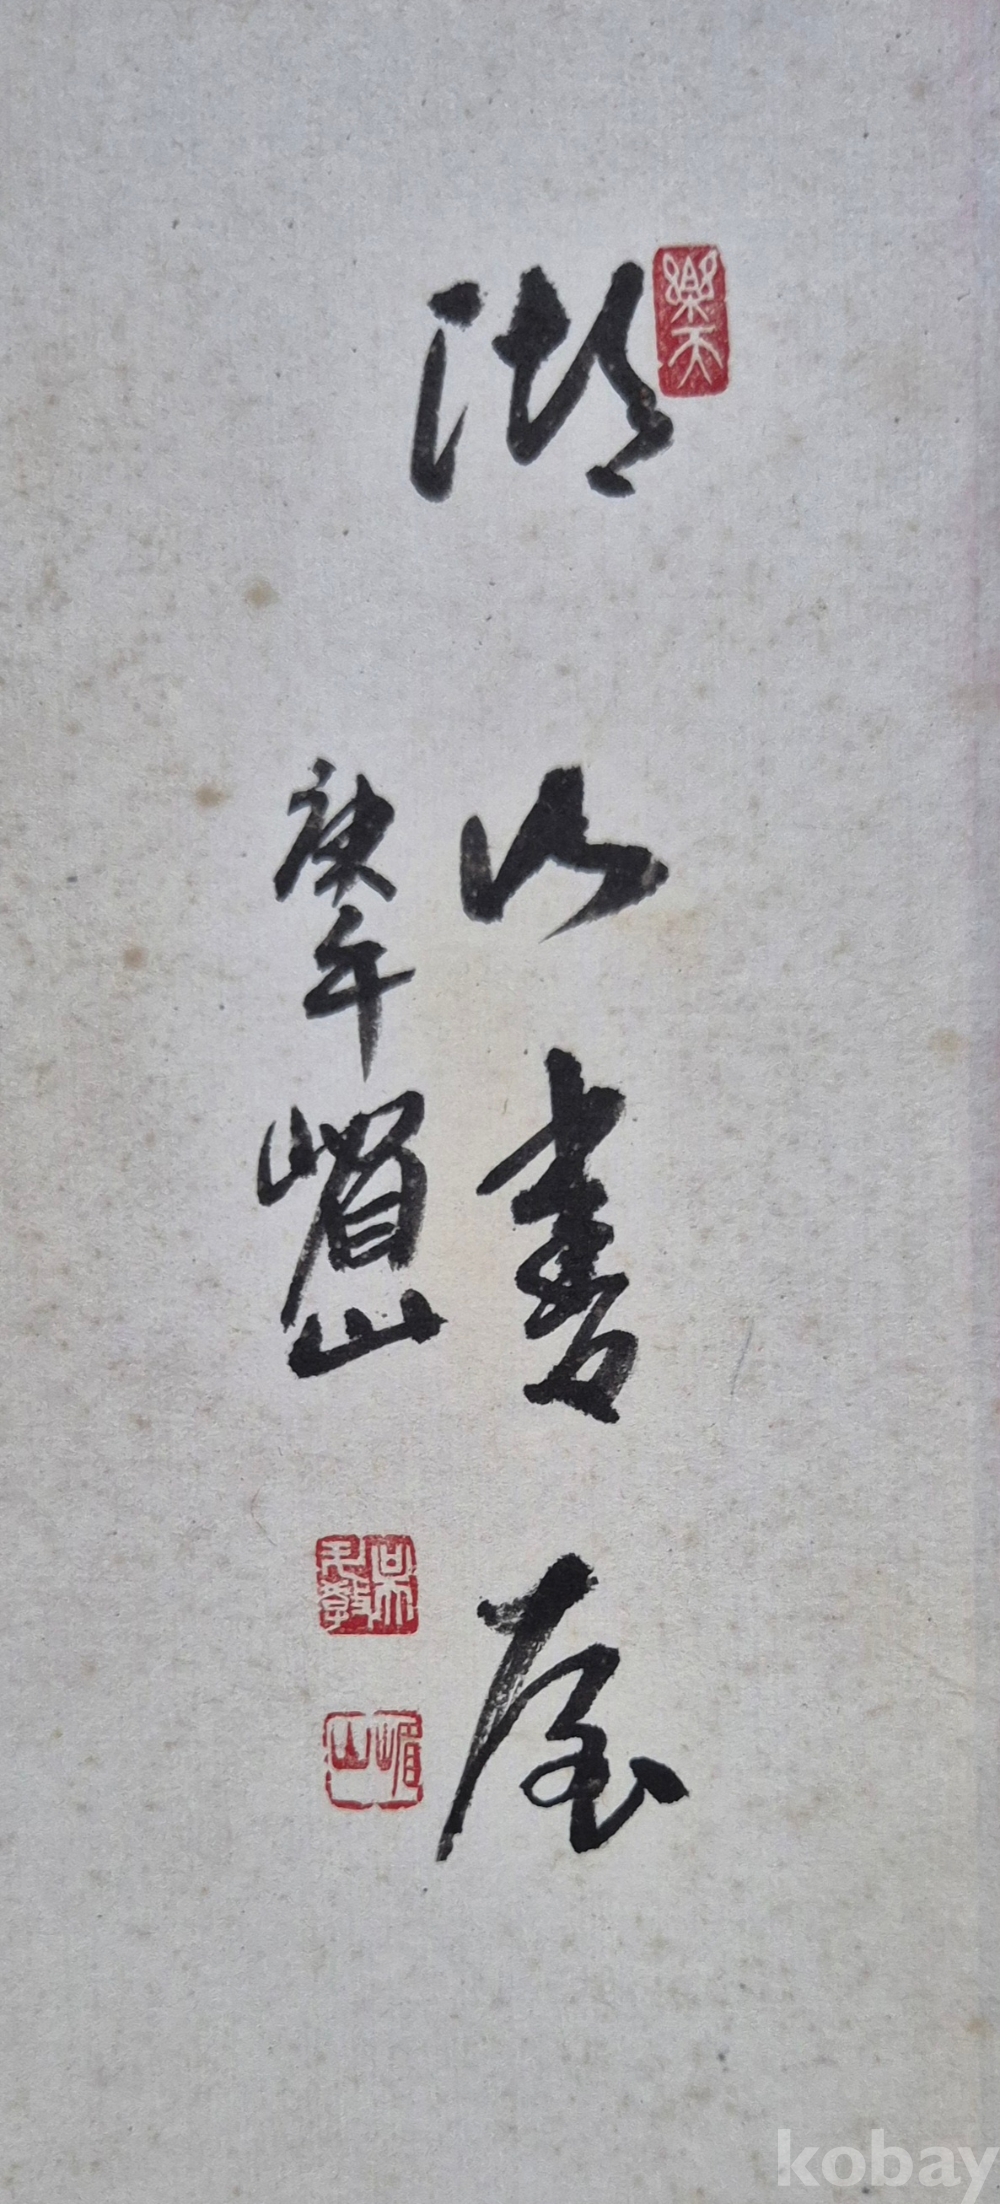 湖山書屋
庚午 嵋山
樂天
嵋山
kobay